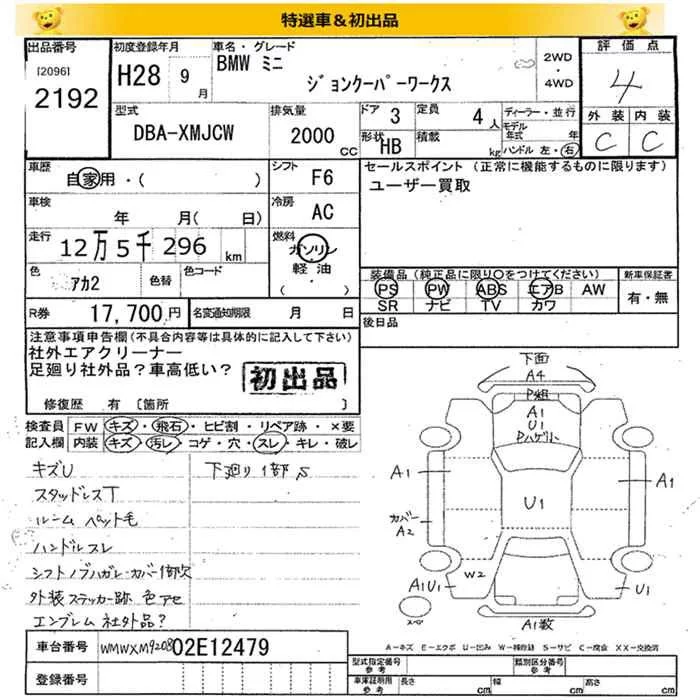 特選車&初出品
出品番号
[2096]
2192
初度登録年月
H28 9月
車名・グレード
BMW ミニ
ジョンクーパーワークス
2WD
・
4WD
評価点
4
外装 内装
C C
型式
DBA-XMJCW
排気量
2000
CC
ドア 3
形状 HB
定員 4人
積載 kg
ディーラー・並行
モデル
年式 年
ハンドル 左・右
車歴
自家用・( )
シフト F6
セールスポイント (正常に機能するものに限ります)
ユーザー買取
車検
年 月( 日)
冷房 AC
走行
12万5千296 km
燃料
ガソリン
軽油
( ・ )
色 アカ2 色替 色コード
装備品(純正品に限り○をつけてください) 新車保証書
PS PW ABS エアB AW
SR ナビ TV カワ
有・無
R券 17,700円 名変通知期限 月 日
後日品
注意事項申告欄(不具合内容等は具体的に記入して下さい)
社外エアクリーナー
足廻り社外品?車高低い?
初出品
修復歴 有 〔箇所 〕
検査員
記入欄
FW キズ・飛石・ヒビ割・リペア跡・×要
内装 キズ・汚レ・コゲ・穴・スレ・キレ・破レ
キズU 下廻り1部S
スタッドレスT
ルーム ペット毛
ハンドルスレ
シフトノブハガレ・カバー1部欠
外装ステッカー跡 色アセ
エンブレム社外品?
下面
A4
P粗
A1
U1
Pハゲ
A1
A1
U1
カバー
A2
W2
A1U1
U1
スペア
A1数
A=キズ E=エクボ U=凹み W=補修跡 S=サビ C=腐食 XX=交換済
車台番号 WMWXM9208 02E12479
登録番号
型式指定番号 参考
類別区分番号 参考
車庫証明用 参考
長さ cm 幅 cm 高さ cm